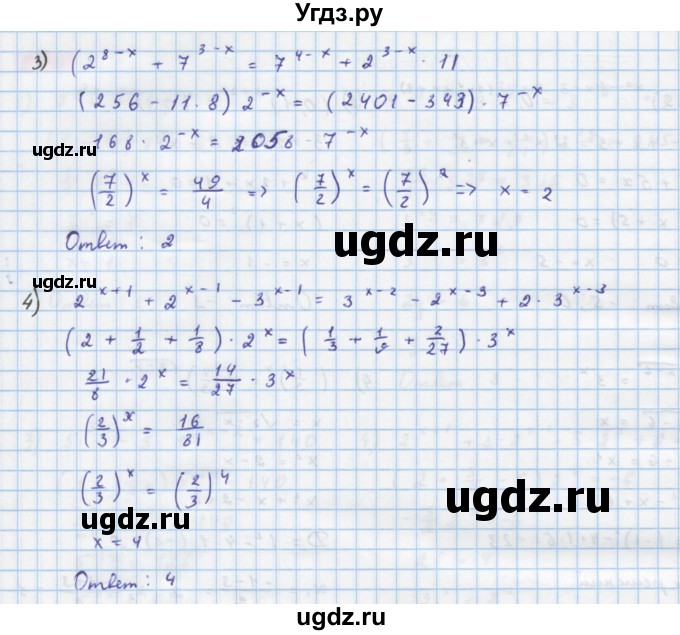 Угдз.ру
3) (2^{8-x} + 7^{3-x} = 7^{4-x} + 2^{3-x} · 11
(256 - 11 · 8) 2^{-x} = (2401 - 343) · 7^{-x}
угдз.ru
168 · 2^{-x} = 2058 · 7^{-x}
(7/2)^x = 49/4 => (7/2)^x = (7/2)^2 => x = 2
Ответ: 2
ugdz.ru
угдз.ru
4) 2^{x+1} + 2^{x-1} - 3^{x-1} = 3^{x-2} - 2^{x-3} + 2 · 3^{x-3}
(2 + 1/2 + 1/8) · 2^x = (1/3 + 1/9 + 2/27) · 3^x
21/8 · 2^x = 14/27 · 3^x
(2/3)^x = 16/81
(2/3)^x = (2/3)^4
ugdz.ru
ugdz.ru
x = 4
Ответ: 4
ugdz.ru